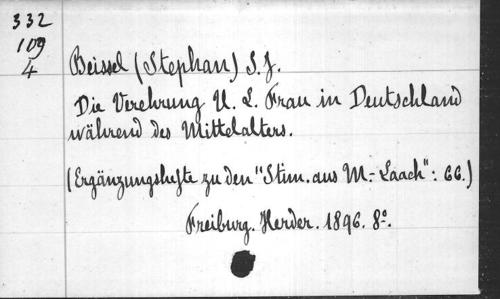 332
109
4
Beissel (Stephan) S. J.
Die Verehrung U. L. Frau in Deutschland
während des Mittelalters.
(Ergänzungshefte zu den "Stim. aus M.-Laach": 66.)
Freiburg. Herder. 1896. 8º.